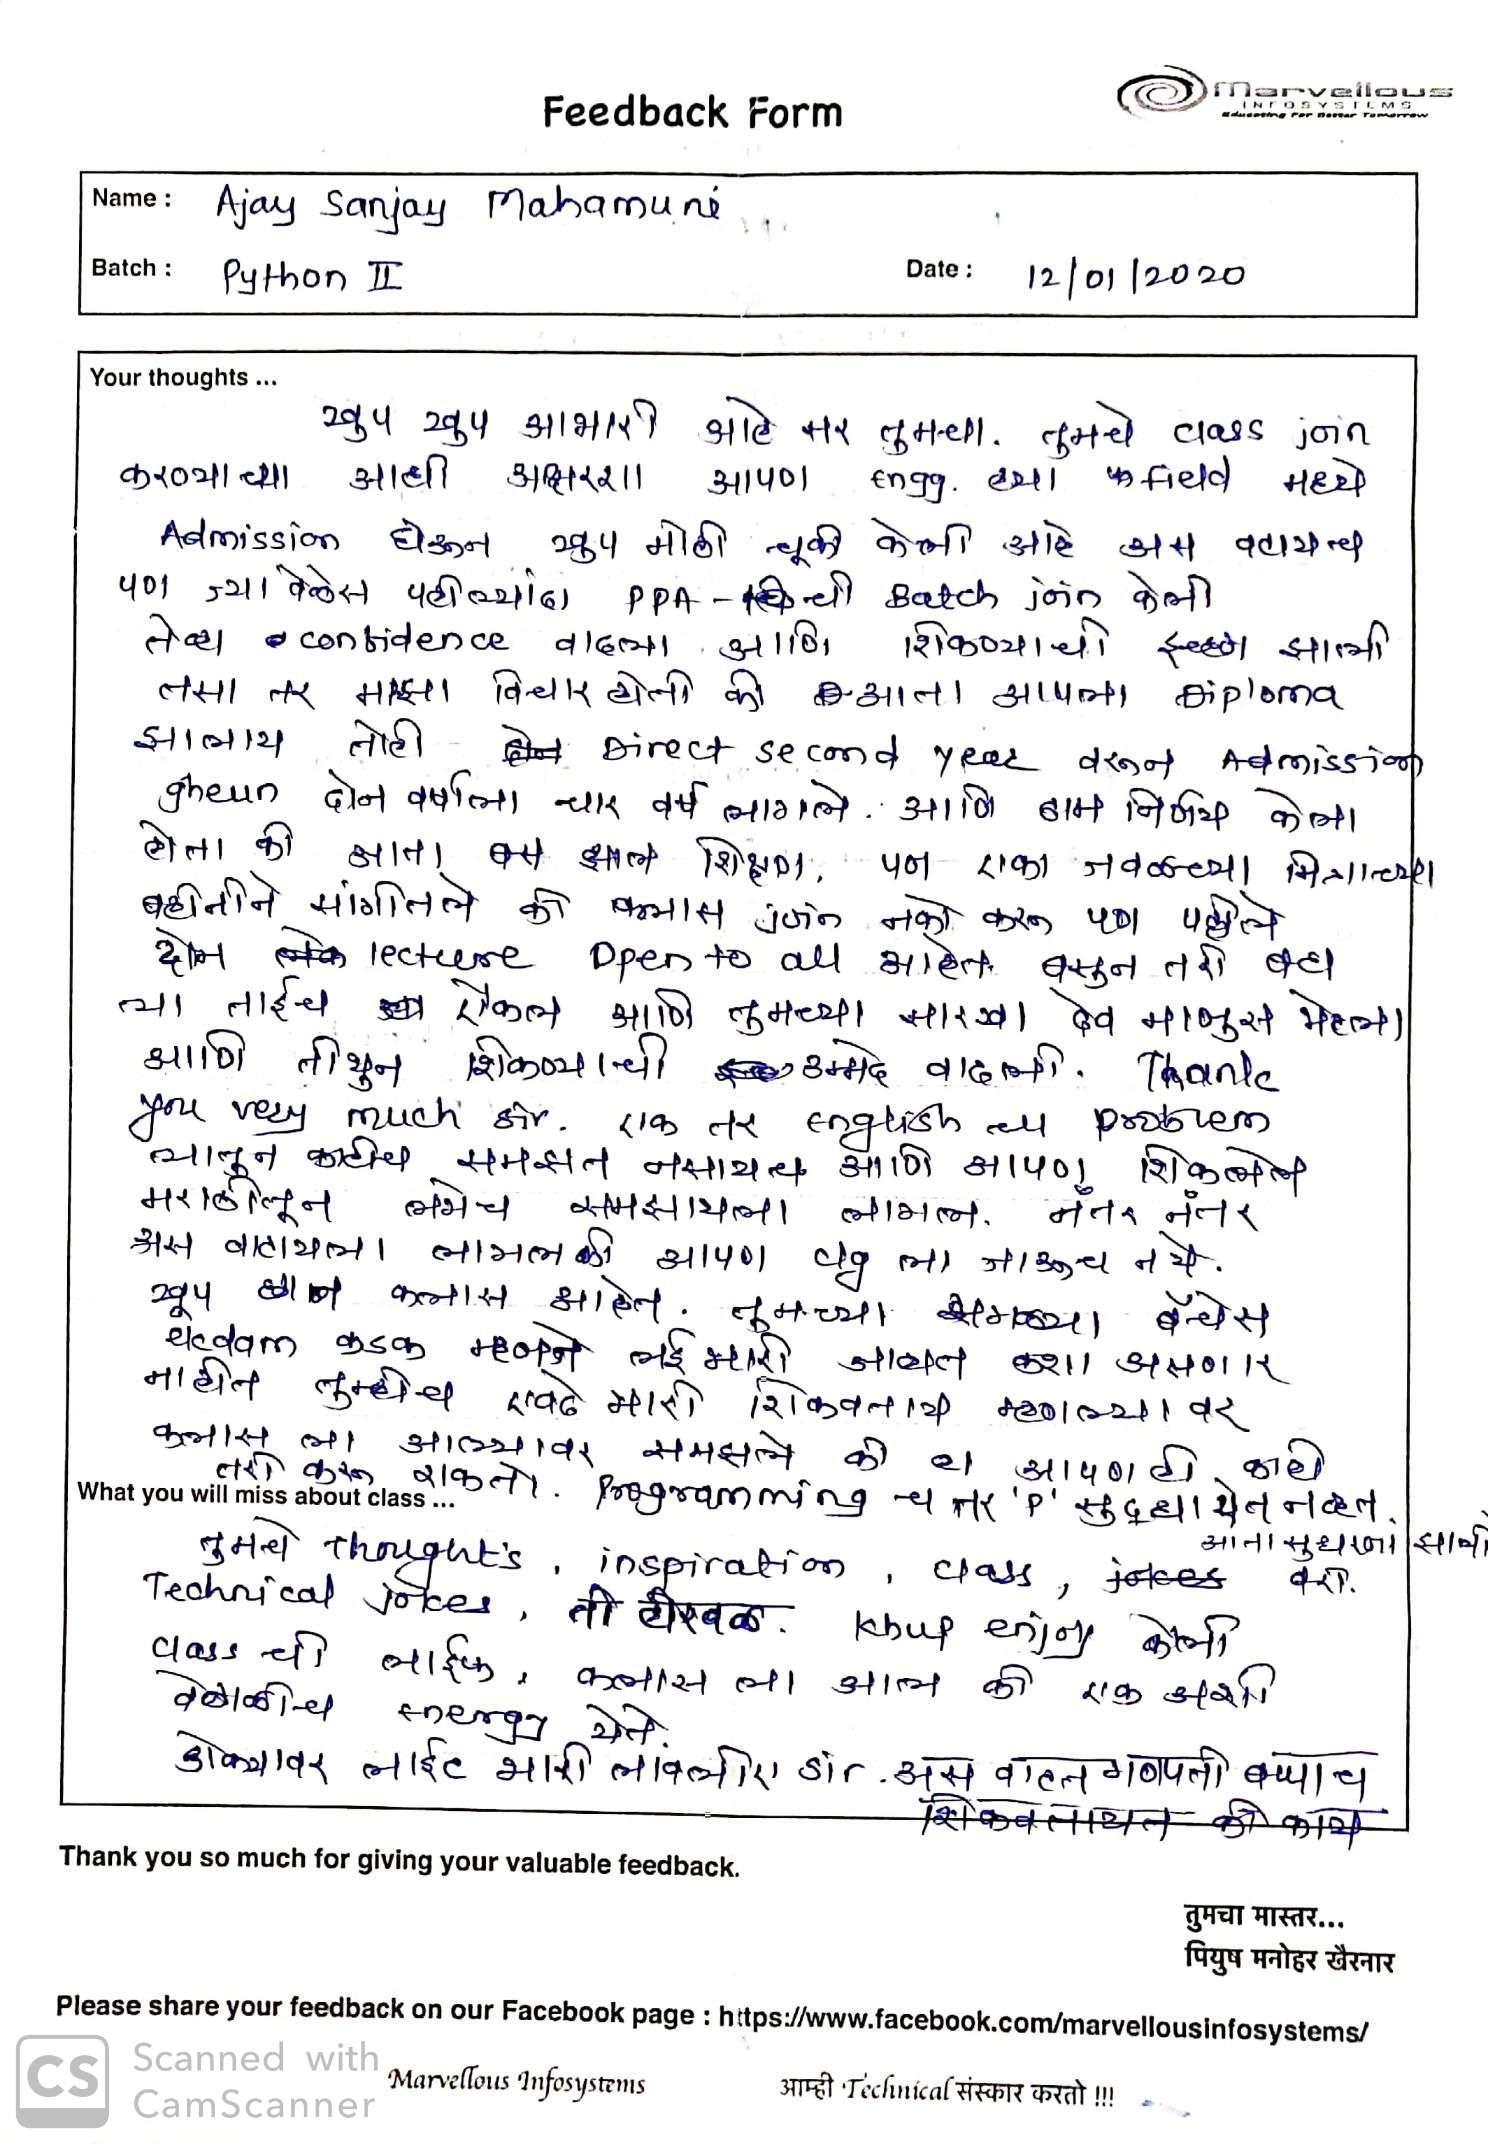 Marvellous
INFOSYSTEMS
Educating For Better Tomorrow
Feedback Form
Name : Ajay Sanjay Mahamuni
Batch : Python II Date : 12/01/2020
Your thoughts ...
खुप खुप आभारी आहे सर तुमचा. तुमचे class join
करण्याच्या आधी अक्षरशा आपण Engg. ह्या field मध्ये
Admission घेऊन खुप मोठी चूकी केली आहे अस वटायच
पण ज्या वेळेस पहील्यांदा PPA - ची Batch join केली
तेव्हा confidence वाढला आणि शिकण्याची इच्छा झाली
तसा तर माझा विचार होता की आता आपला Diploma
झालाय तोही Direct second year वरून Admission
gheun दोन वर्षाला चार वर्ष लागले. आणि ठाम निर्णय केला
होता की आता बस झाल शिक्षण. पण एका जवळच्या मित्राच्या
बहीनीने सांगीतले की क्लास join नको करू पण पहीले
दोन lecture Open to all आहेत बसुन तरी बघ
त्या ताईच ऐकल आणि तुमच्या सारखा देव माणुस भेटला
आणि तीथुन शिकण्याची उमेद वाढली. Thank
you very much sir. एक तर English चा problem
त्यातुन काहीच समजत नसायच आणि आपण शिकलेल
मराठीतून लगेच समझायला लागल. नंतर नंतर
अस वाटायला लागल की आपण clg ला जाऊच नये.
खूप छान क्लास आहेत. तुमच्या सगळ्या बॅचेस
ekdam कडक म्हणजे लई भारी जायात कशा असणार
नाहीत तुम्हीच एवढे भारी शिकवताय म्हणल्यावर
क्लास ला आल्यावर समझले की हा आपण ही काही
तरी करू शकतो. Programming च तर 'P' सुद्धा येत नव्हत.
आता सुधारणा झाली
What you will miss about class ...
तुमचे thought's, inspiration, class, jokes बरा.
Technical jokes, ती हीरवळ. khup enjoy केली
class ची लाईफ, क्लास ला आल की एक अशी
वेगळीच energy येते.
डोक्यावर लाईट भारी लावलीए sir. अस वाटत गणपती बप्पाच
शिकवतायत की काय
Thank you so much for giving your valuable feedback.
तुमचा मास्तर...
पियुष मनोहर खैरनार
Please share your feedback on our Facebook page : https://www.facebook.com/marvellousinfosystems/
CS Scanned with
CamScanner
Marvellous Infosystems आम्ही Technical संस्कार करतो !!!